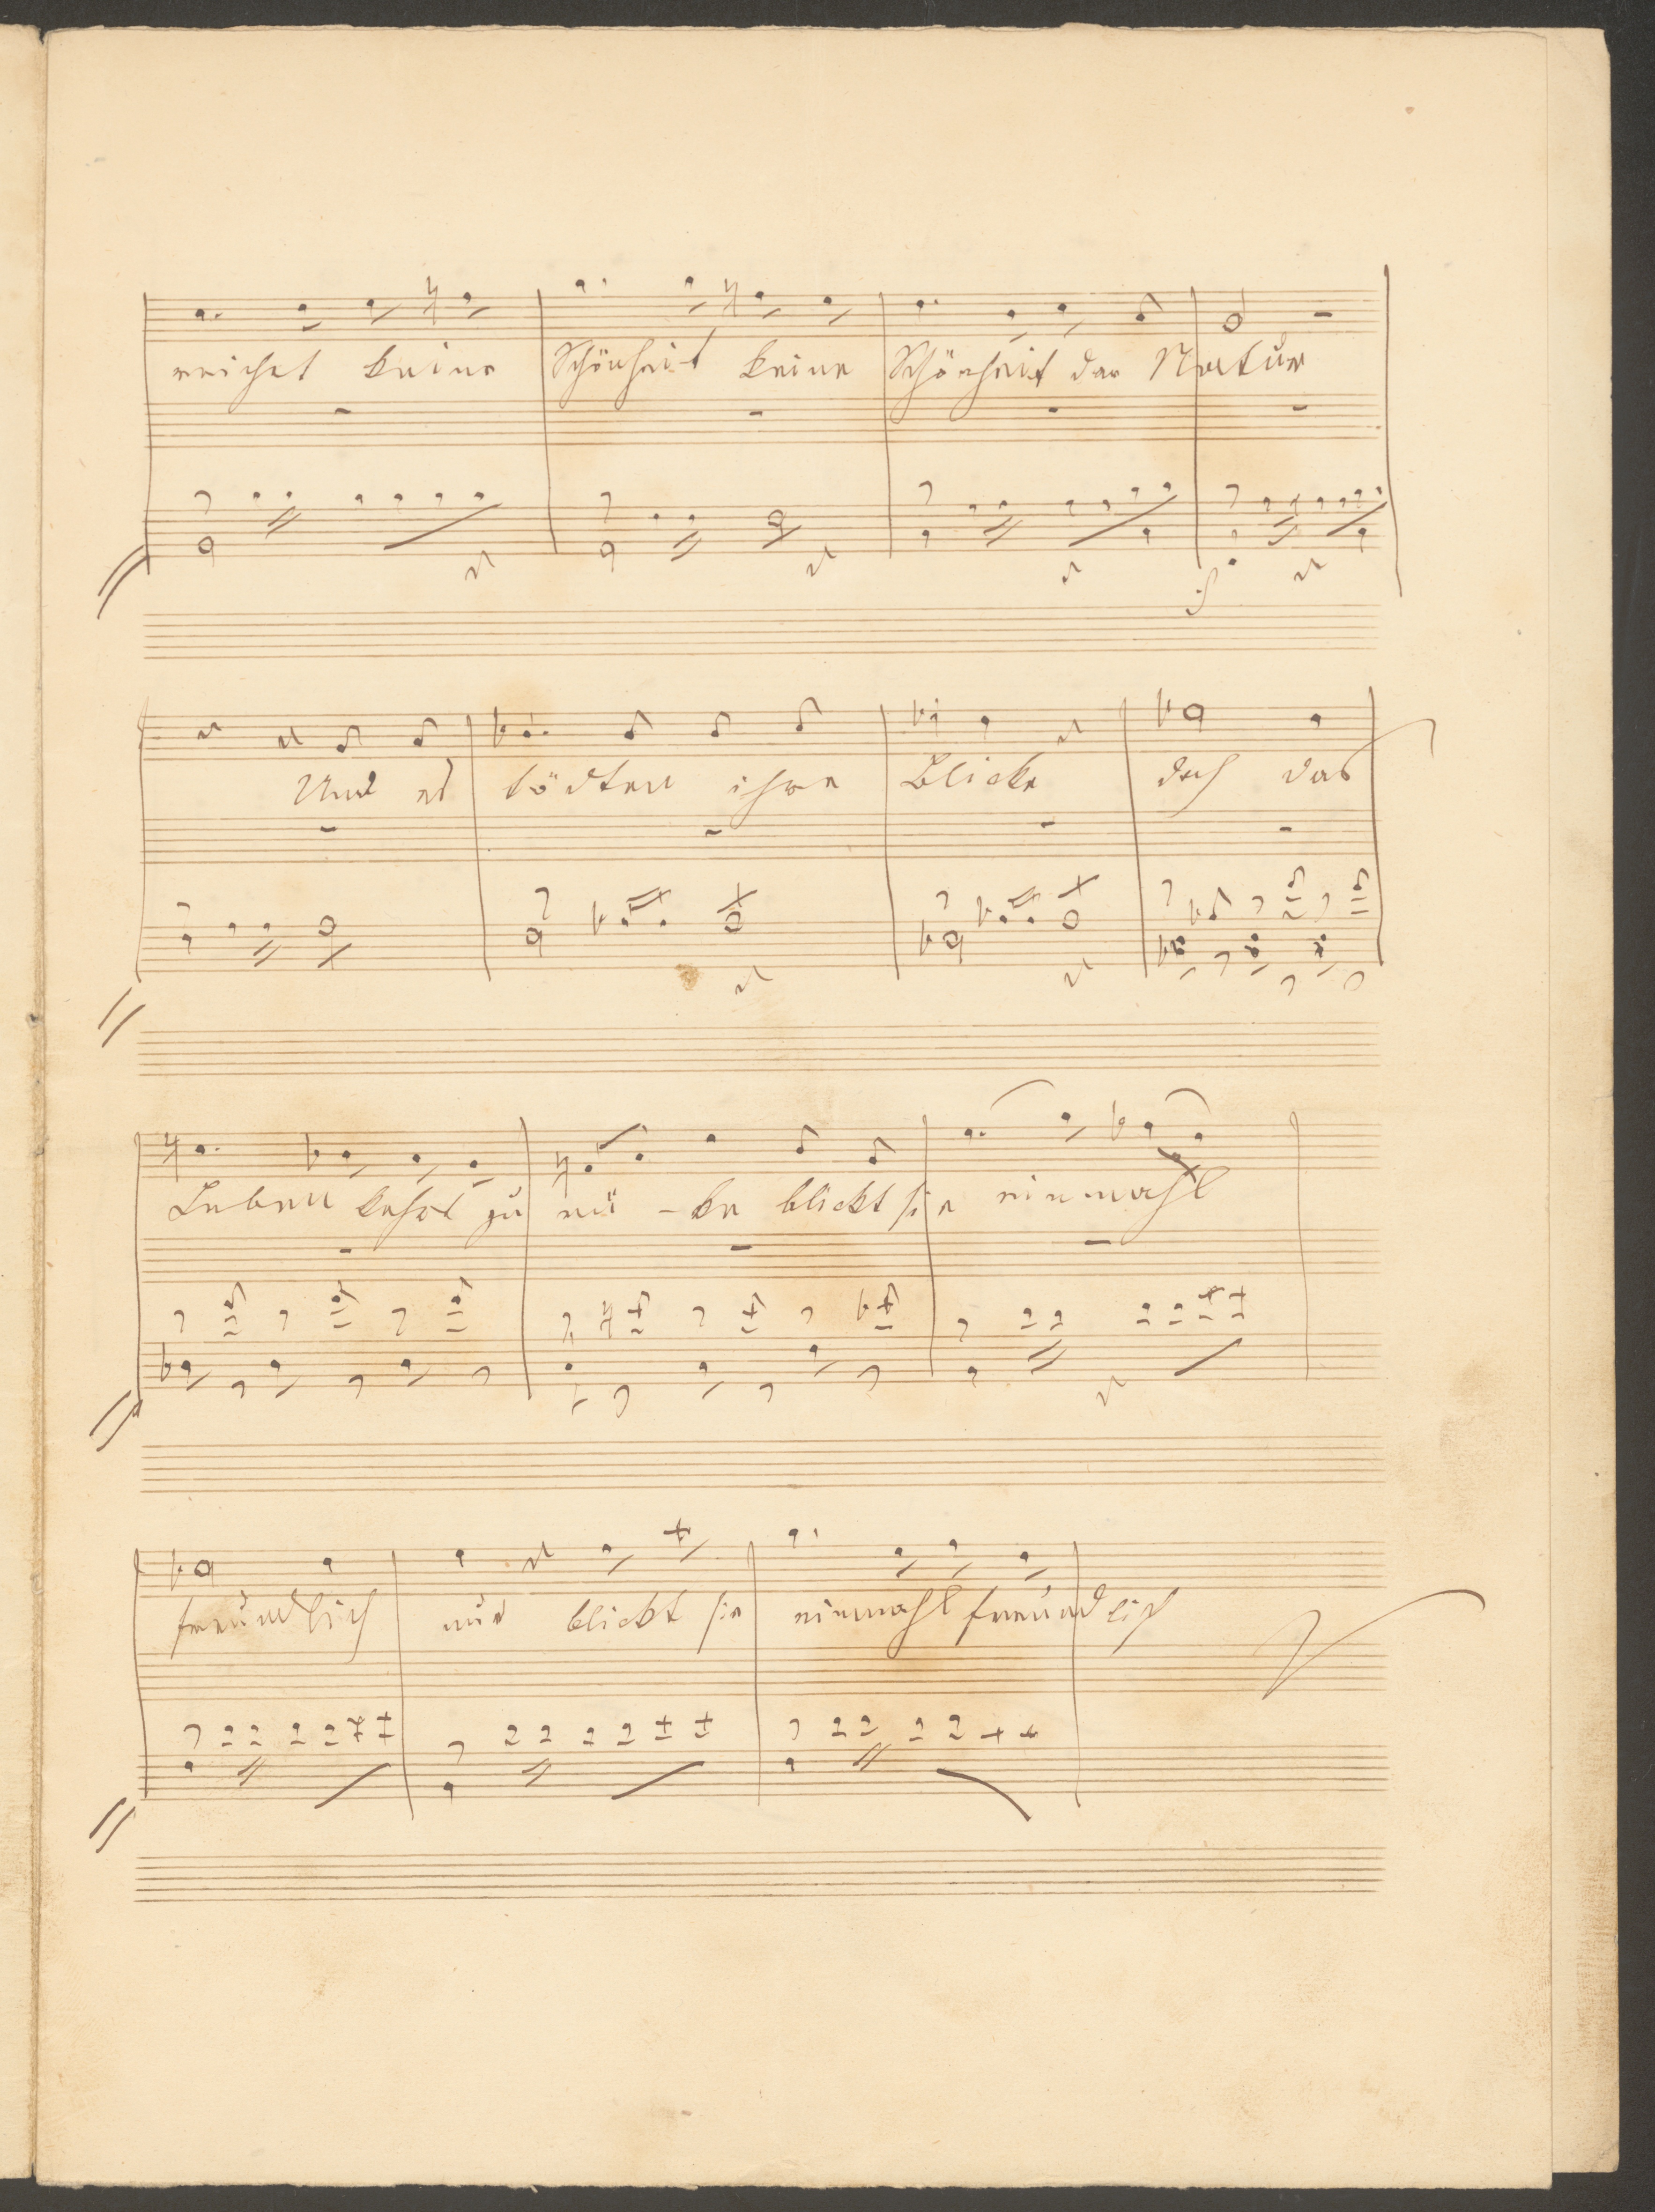 reichet keine Schönheit keine Schönheit der Natur
Und es tödten ihre Blicke doch das
Leben kehrt zurü-ke blickt sie einmahl
freundlich nur blickt sie einmahl freundlich